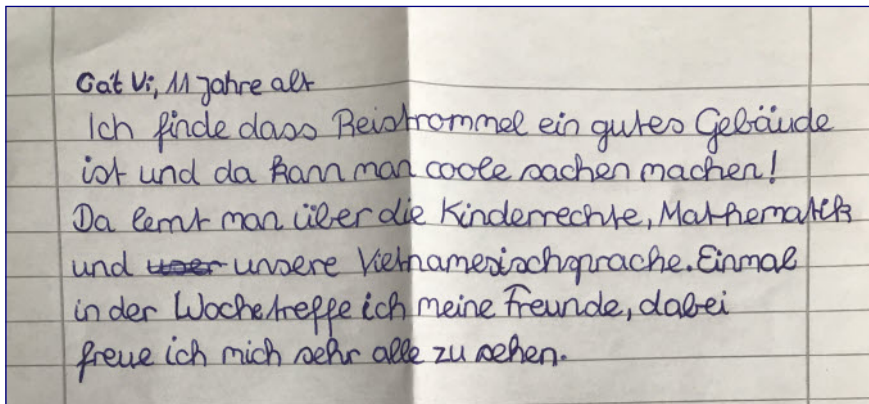 Cát Vi, 11 Jahre alt
Ich finde dass Reistrommel ein gutes Gebäude
ist und da kann man coole sachen machen!
Da lernt man über die Kinderrechte, Mathematik
und unsere Vietnamesischsprache. Einmal
in der Woche treffe ich meine Freunde, dabei
freue ich mich sehr alle zu sehen.